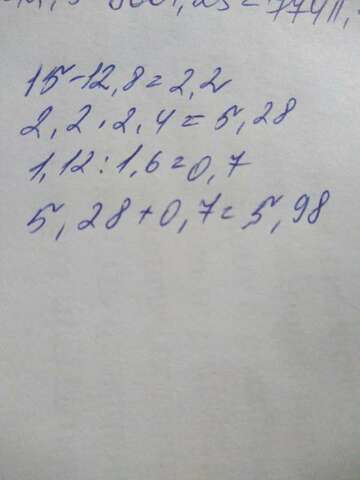 15-12,8=2,2
2,2·2,4=5,28
1,12:1,6=0,7
5,28+0,7=5,98